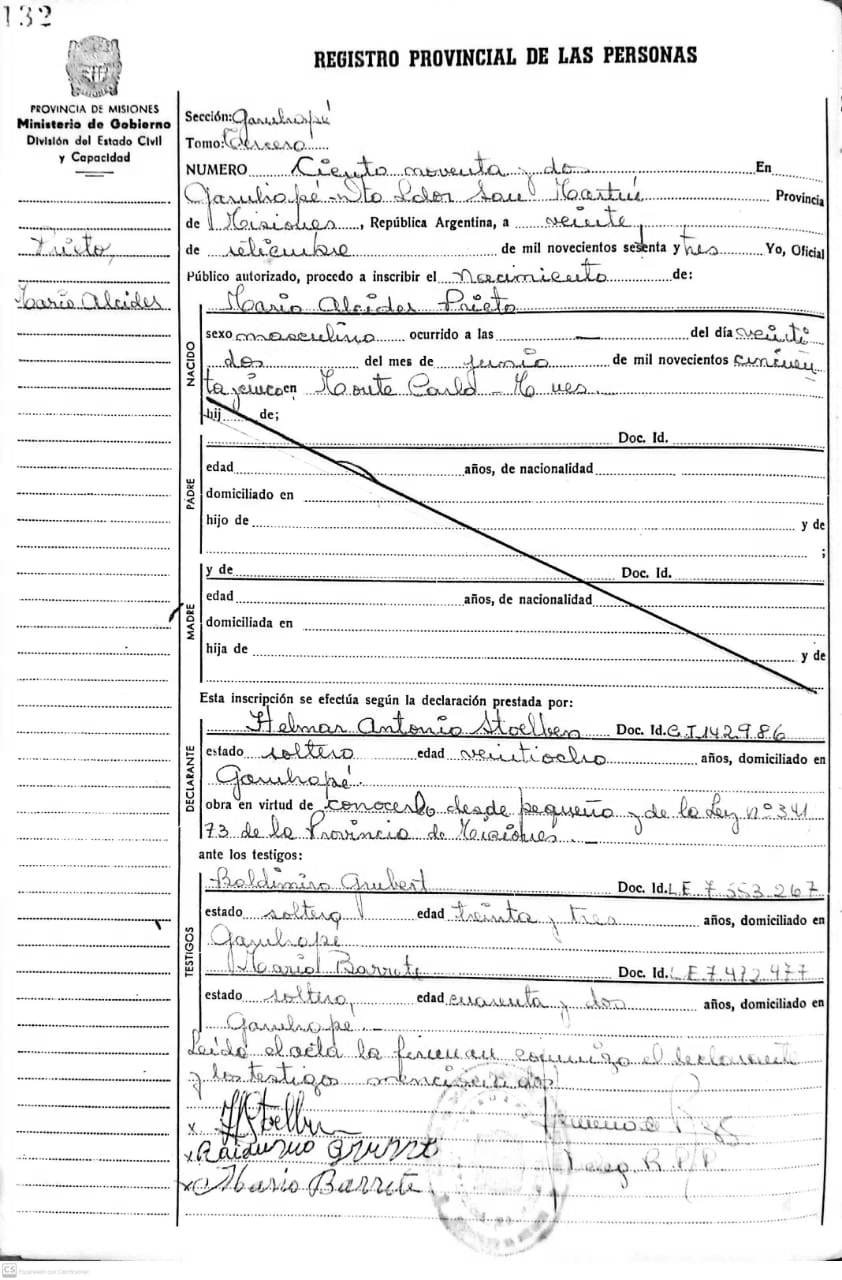 132
REGISTRO PROVINCIAL DE LAS PERSONAS
PROVINCIA DE MISIONES
Ministerio de Gobierno
División del Estado Civil
y Capacidad
Prieto,
Mario Alcides
Sección: Garuhapé
Tomo: Tercero
NUMERO Ciento noventa y dos En
Garuhapé - Dto Ldor San Martín Provincia
de Misiones, República Argentina, a veinte
de setiembre de mil novecientos sesenta y tres Yo, Oficial
Público autorizado, procedo a inscribir el Nacimiento de:
NACIDO
Mario Alcides Prieto
sexo masculino ocurrido a las — del día veinti
dos del mes de junio de mil novecientos cincuen
ta y cinco en Monte Carlo - M nes.
hij de;
PADRE
Doc. Id.
edad años, de nacionalidad
domiciliado en
hijo de y de
;
MADRE
y de Doc. Id.
edad años, de nacionalidad
domiciliada en
hija de y de
Esta inscripción se efectúa según la declaración prestada por:
DECLARANTE
Helmar Antonio Stoelben Doc. Id. C.I. 142.986
estado soltero edad veintiocho años, domiciliado en
Garuhapé.
obra en virtud de conocerlo desde pequeño y de la Ley nº 341
73 de la Provincia de Misiones. —
ante los testigos:
TESTIGOS
Baldimiro Grubert Doc. Id. L.E 7 553 267
estado soltero edad treinta y tres años, domiciliado en
Garuhapé
Mario Barrete Doc. Id. L E 7 472 477
estado soltero, edad cuarenta y dos años, domiciliado en
Garuhapé —
Leída el acta la firman conmigo el declarante
y los testigos mencionados
x HStoelben
x
x Mario Barrete
Deleg R.P.P.
CS Escaneado con CamScanner